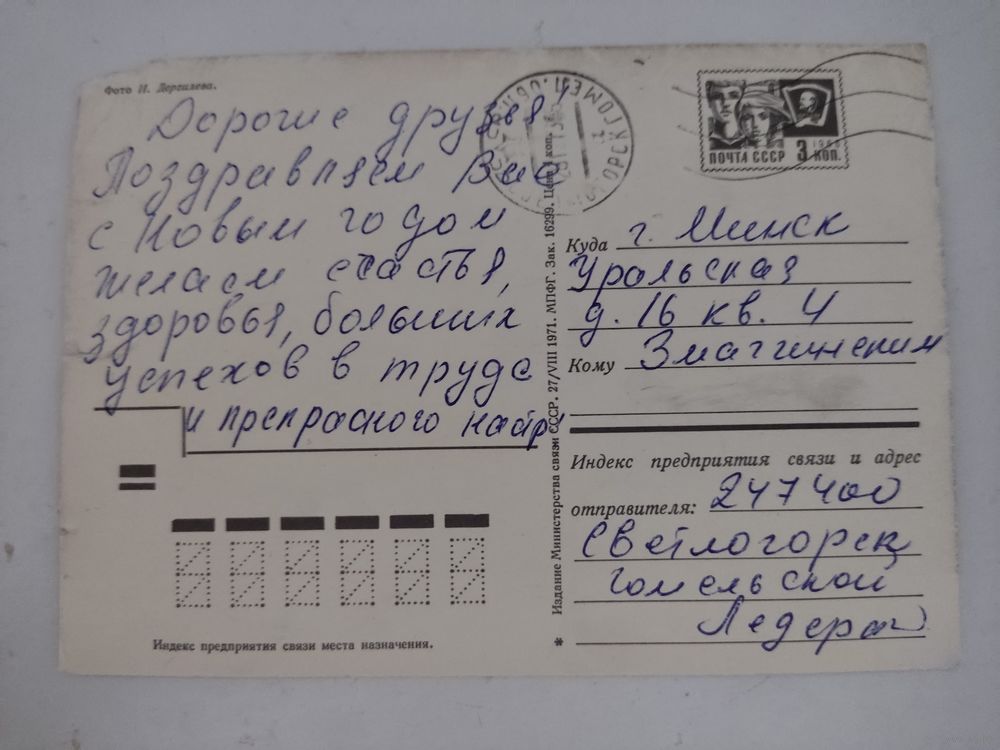 Фото И. Дергилева.
Дорогие друзья!
Поздравляем Вас
с Новым годом
желаем счастья,
здоровья, больших
успехов в труде
и прекрасного настр
Индекс предприятия связи места назначения.
Издание Министерства связи СССР. 27/VIII 1971. МПФГ. Зак. 16299. Цена коп.
ПОЧТА СССР 3 КОП.
1966
Куда г. Минск
Уральская
д. 16 кв. 4
Кому
Индекс предприятия связи и адрес
отправителя: 247400
Светлогорск
Гомельской
*